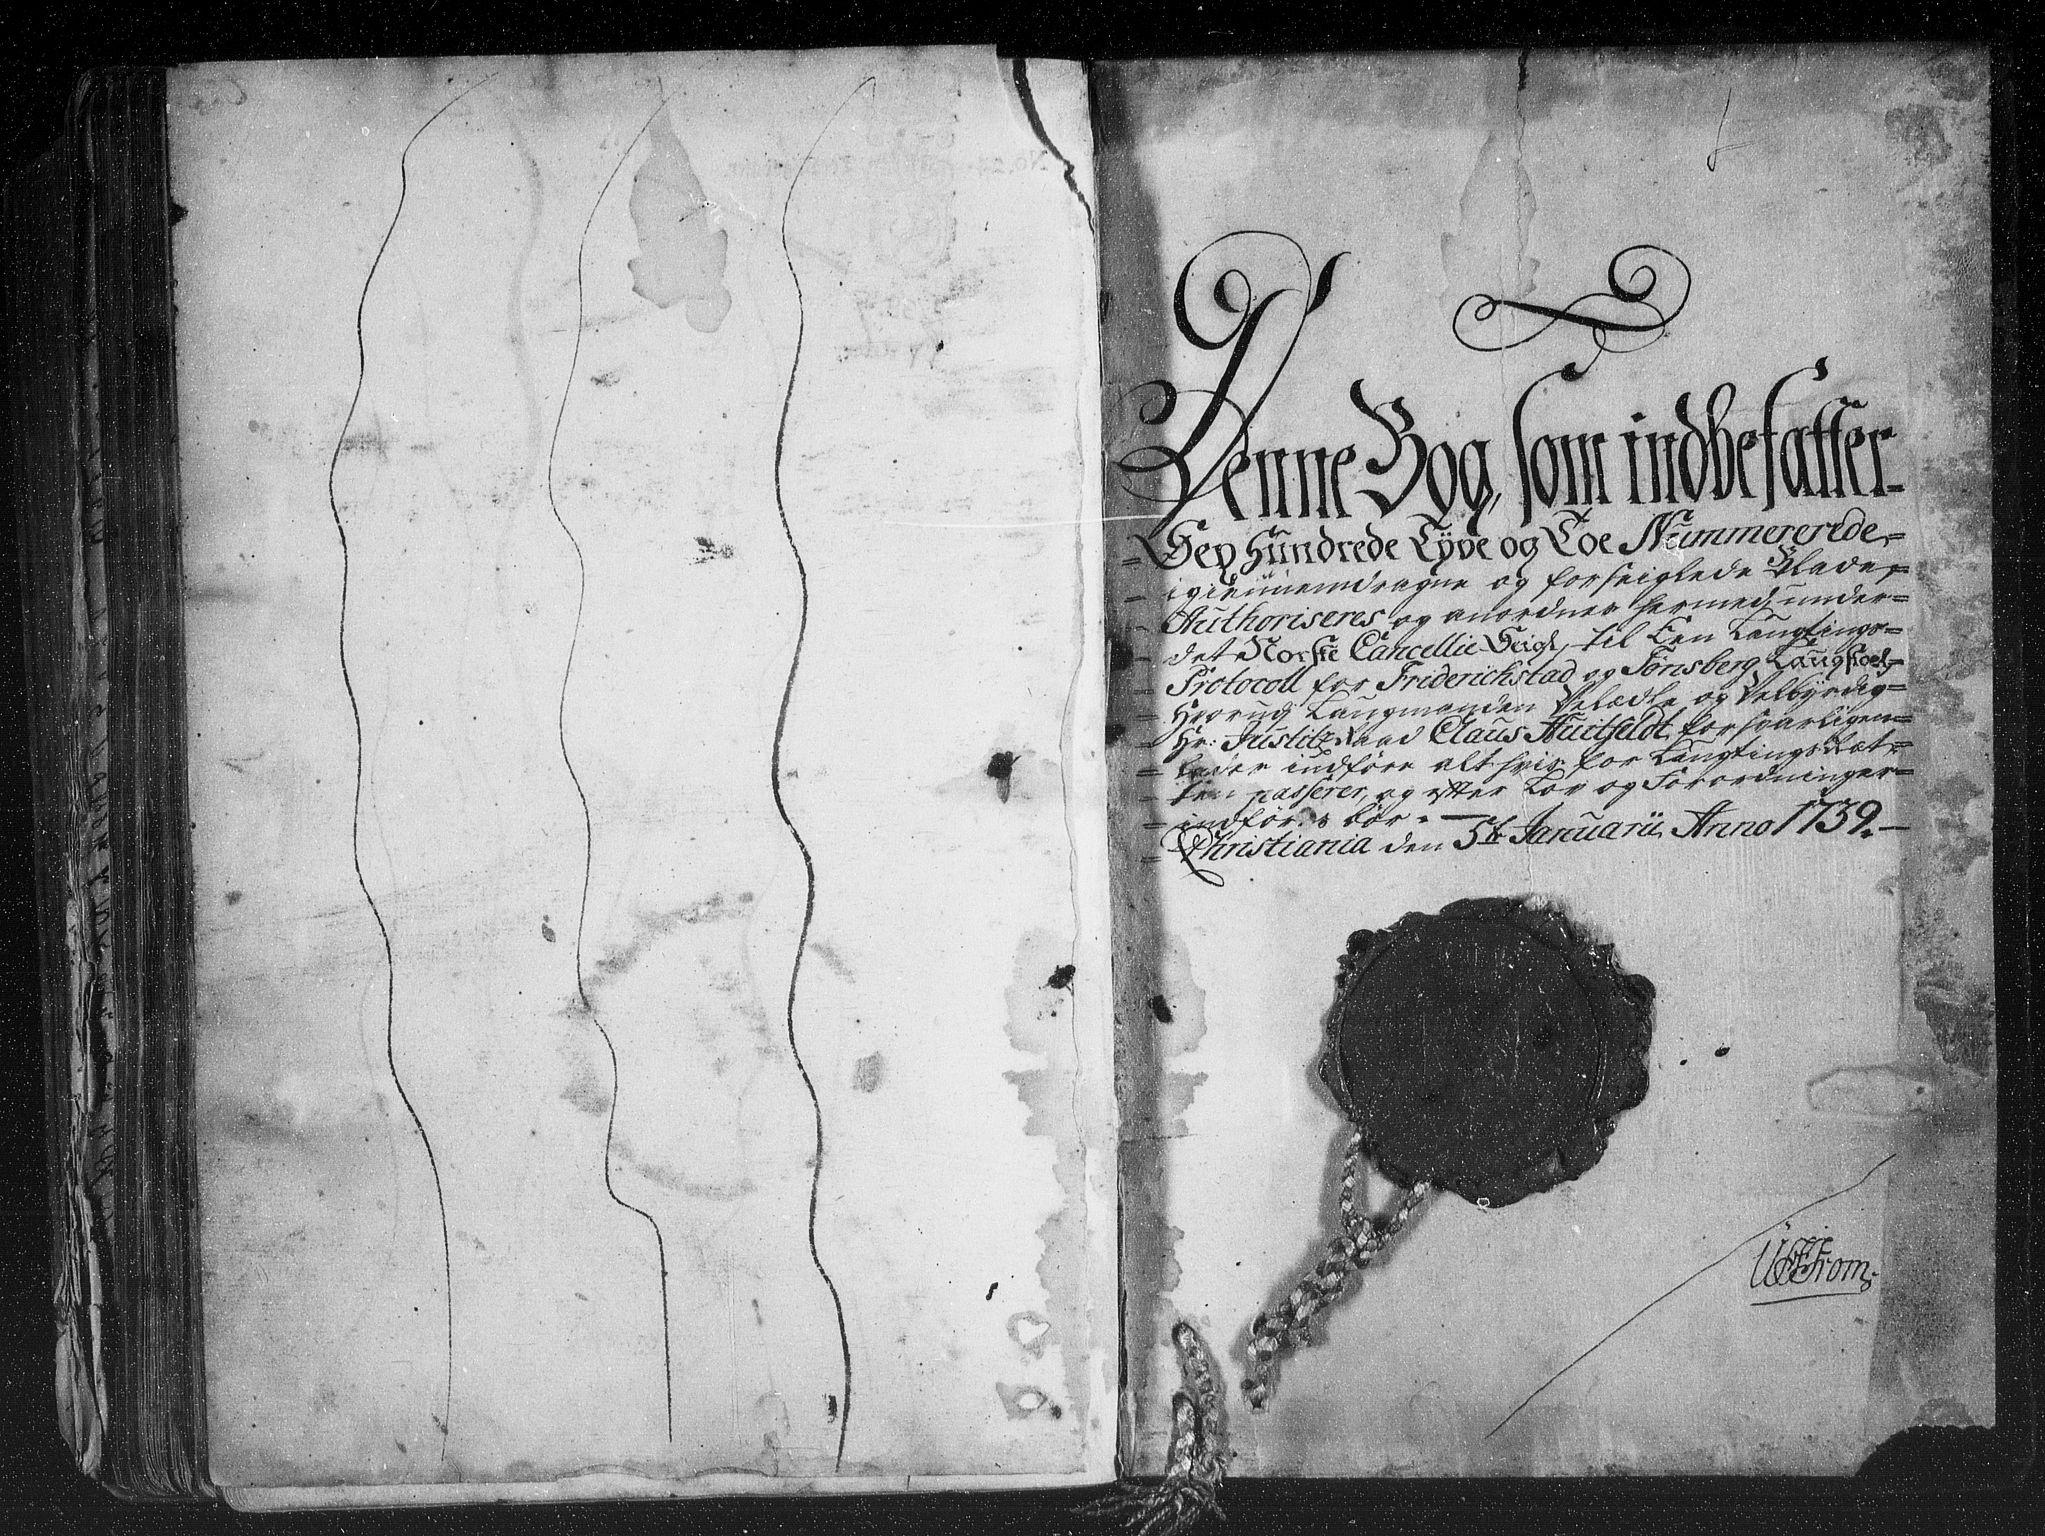 Denne Bog, som indbefatter-
Sex Hundrede Tÿve og Toe Nummererede,
igiennemdragne og forseiglede Blade,
Authoriseres og anordnes hermed, under
det Norske Cancellie-Seigl, til Een Laugtings-
Protocoll for Friderichstad og Tønsberg Laugstoel,
Hvorudj Laugmanden Velædle og Velbÿrdig
Hr: Justitz-Raad Claus Huitfeldt forsvarligen
lader indføre alt hvis for Laugtings Ræt-
ten passerer, og efter Lov og Forordninger
indføres bør.
Christiania den 5te Januarii Anno 1739.